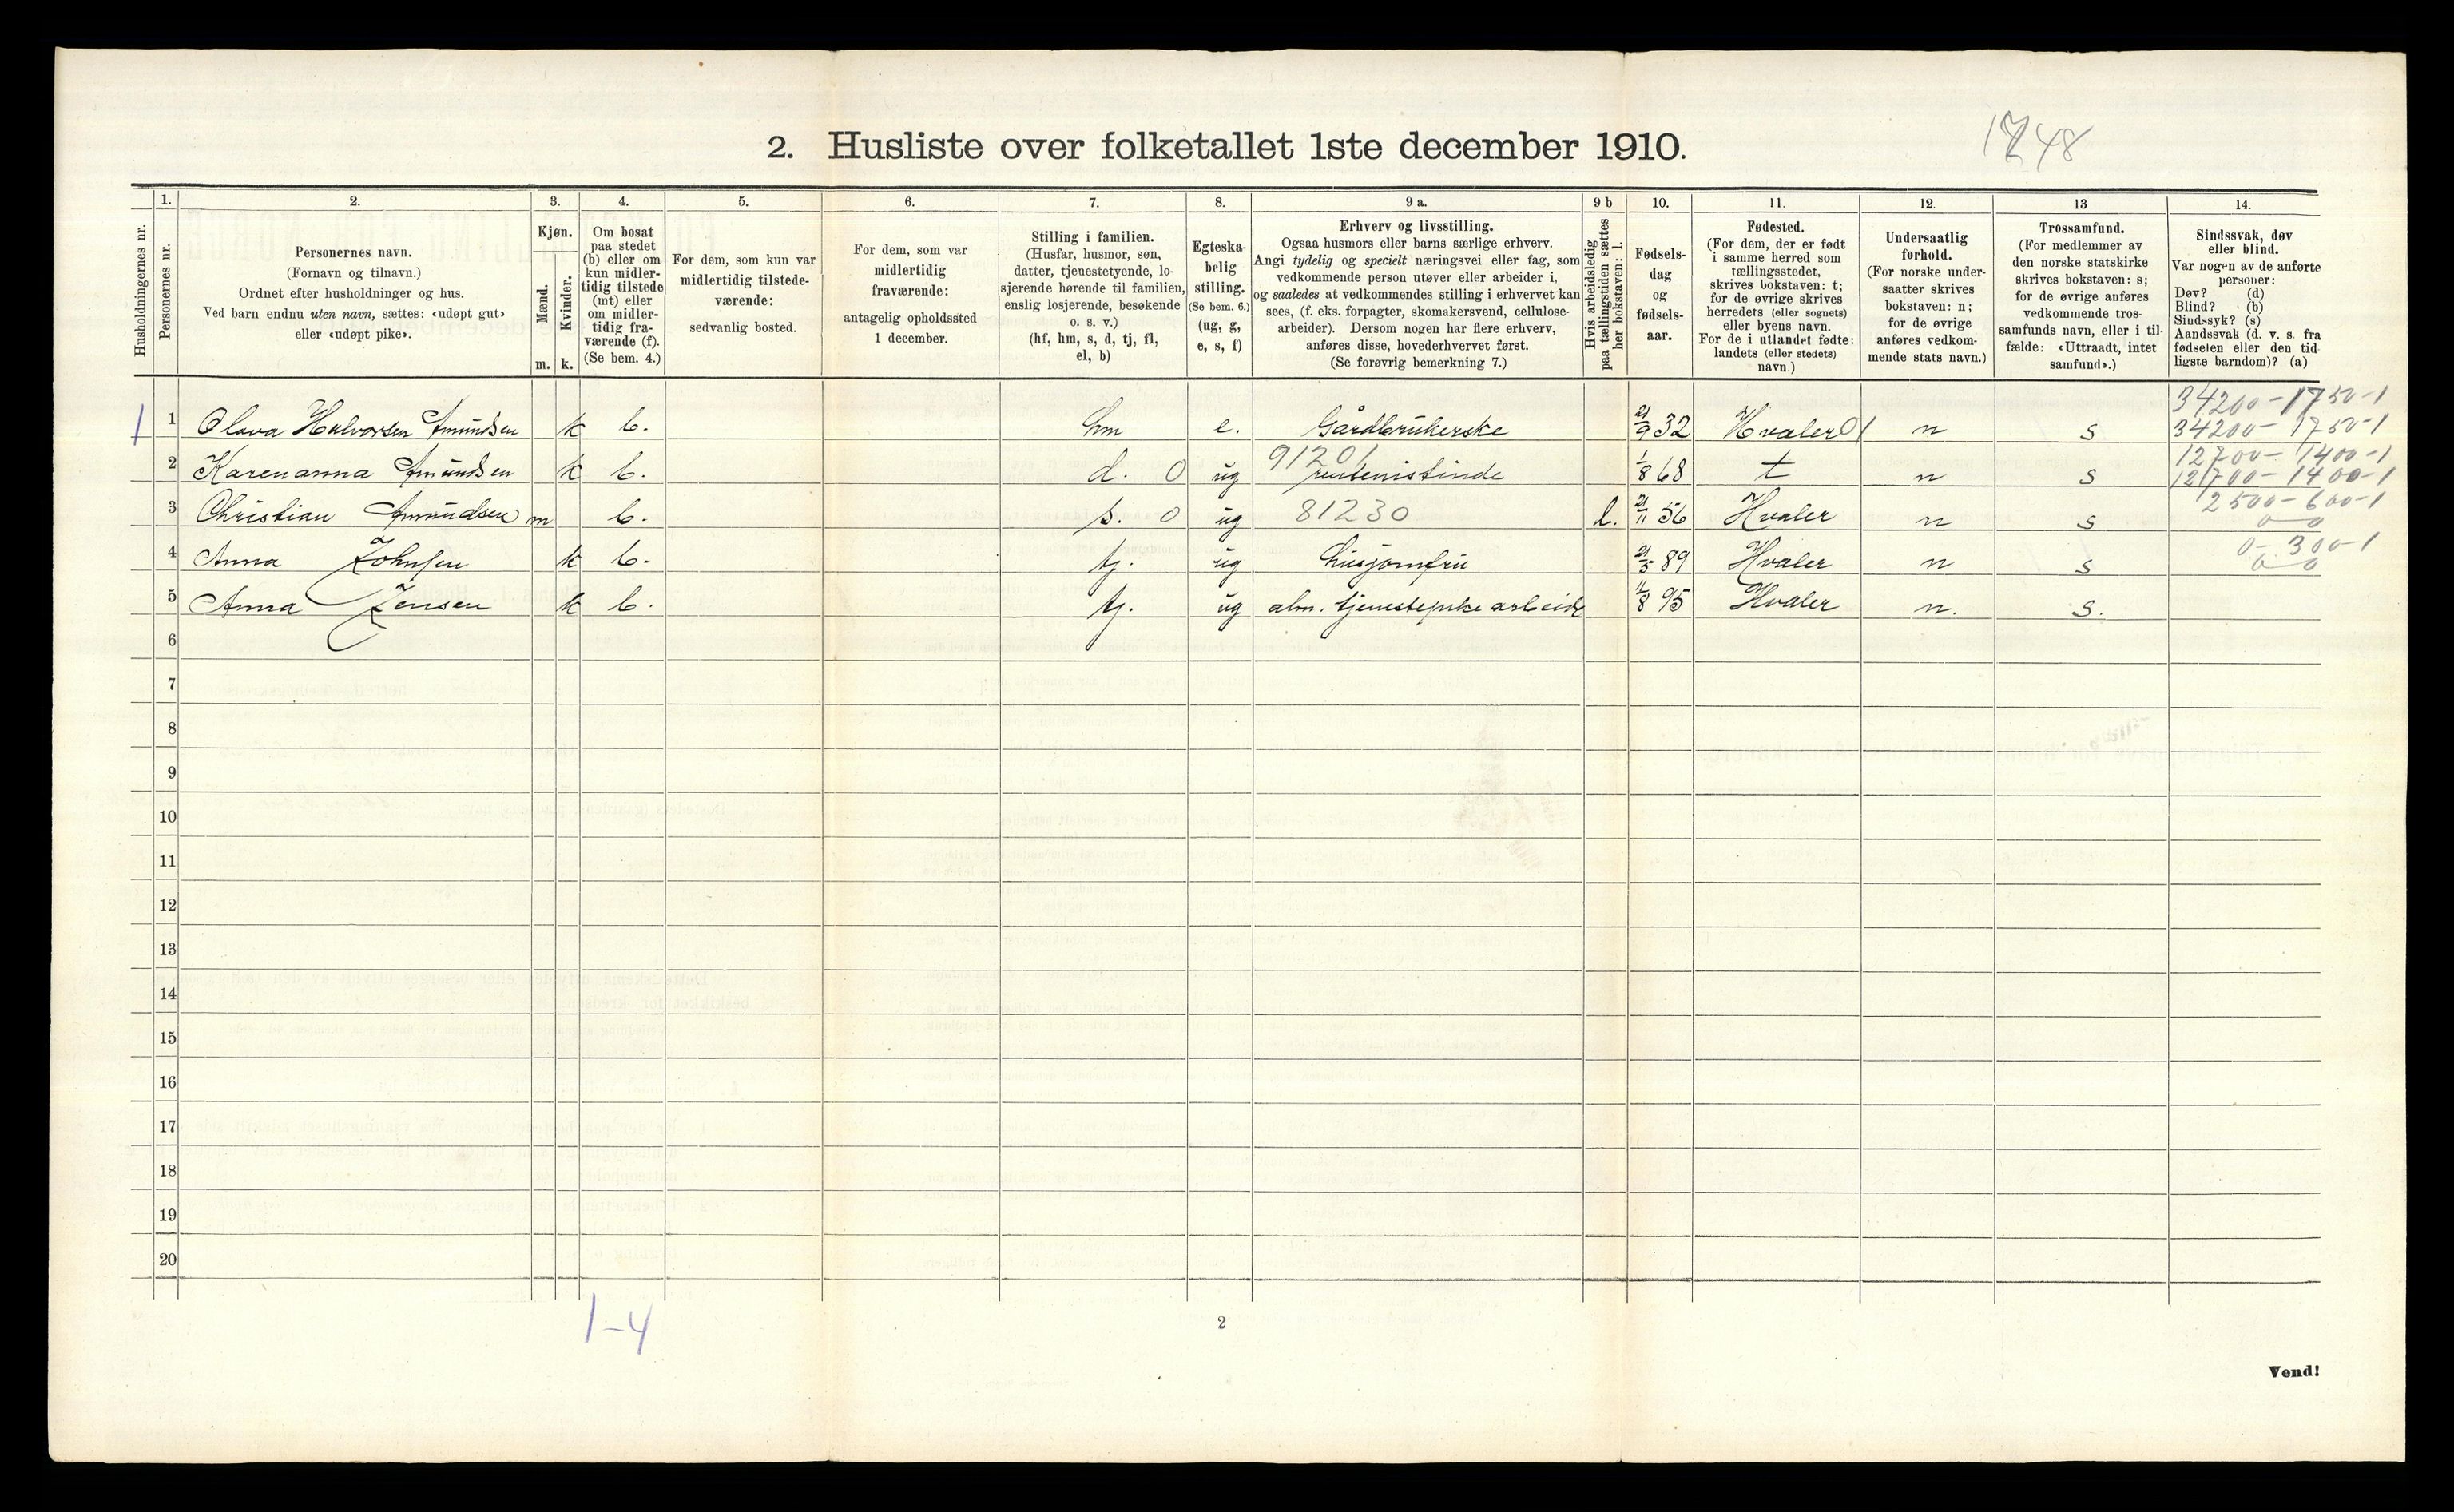 1748
2. Husliste over folketallet 1ste december 1910.
Husholdningernes nr.
1.
Personernes nr.
2.
Personernes navn.
(Fornavn og tilnavn.)
Ordnet efter husholdninger og hus.
Ved barn endnu uten navn, sættes: «udøpt gut»
eller «udøpt pike».
3.
Kjøn.
Mænd.
Kvinder.
m. k.
4.
Om bosat
paa stedet
(b) eller om
kun midler-
tidig tilstede
(mt) eller
om midler-
tidig fra-
værende (f).
(Se bem. 4.)
5.
For dem, som kun var
midlertidig tilstede-
værende:
sedvanlig bosted.
6.
For dem, som var
midlertidig
fraværende:
antagelig opholdssted
1 december.
7.
Stilling i familien.
(Husfar, husmor, søn,
datter, tjenestetyende, lo-
sjerende hørende til familien,
enslig losjerende, besøkende
o. s. v.)
(hf, hm, s, d, tj, fl,
el, b)
8.
Egteska-
belig
stilling.
(Se bem. 6.)
(ug, g,
e, s, f)
9 a.
Erhverv og livsstilling.
Ogsaa husmors eller barns særlige erhverv.
Angi tydelig og specielt næringsvei eller fag, som
vedkommende person utøver eller arbeider i,
og saaledes at vedkommendes stilling i erhvervet kan
sees, (f. eks. forpagter, skomakersvend, cellulose-
arbeider). Dersom nogen har flere erhverv,
anføres disse, hovederhvervet først.
(Se forøvrig bemerkning 7.)
9 b
Hvis arbeidsledig
paa tællingstiden sættes
her bokstaven: l.
10.
Fødsels-
dag
og
fødsels-
aar.
11.
Fødested.
(For dem, der er født
i samme herred som
tællingsstedet,
skrives bokstaven: t;
for de øvrige skrives
herredets (eller sognets)
eller byens navn.
For de i utlandet fødte:
landets (eller stedets)
navn.)
12.
Undersaatlig
forhold.
(For norske under-
saatter skrives
bokstaven: n;
for de øvrige
anføres vedkom-
mende stats navn.)
13
Trossamfund.
(For medlemmer av
den norske statskirke
skrives bokstaven: s;
for de øvrige anføres
vedkommende tros-
samfunds navn, eller i til-
fælde: «Uttraadt, intet
samfund».)
14.
Sindssvak, døv
eller blind.
Var nogen av de anførte
personer:
Døv? (d)
Blind? (b)
Sindssyk? (s)
Aandssvak (d. v. s. fra
fødselen eller den tid-
ligste barndom)? (a)
34200-1750-1
1 1 Olava Halvorsen Amundsen k b. hm e. Gårdbrukerske 21/9 32 Hvaler 01 n s 34200-1750-1
12700-1400-1
2 Karenanna Amundsen k b. d. 0 ug 91201 rentenistinde 1/8 68 t n s 12700-1400-1
2500-600-1
3 Christian Amundsen m b. s. 0 ug 81230 l. 21/11 56 Hvaler n s 0-0
0-300-1
4 Anna Johnsen k b. tj. ug husjomfru 21/5 89 Hvaler n s 0-0
5 Anna Jensen k b. tj. ug alm. tjenestepike arbeide 11/8 95 Hvaler n. s.
6
7
8
9
10
11
12
13
14
15
16
17
18
19
20
1-4
2
Vend!